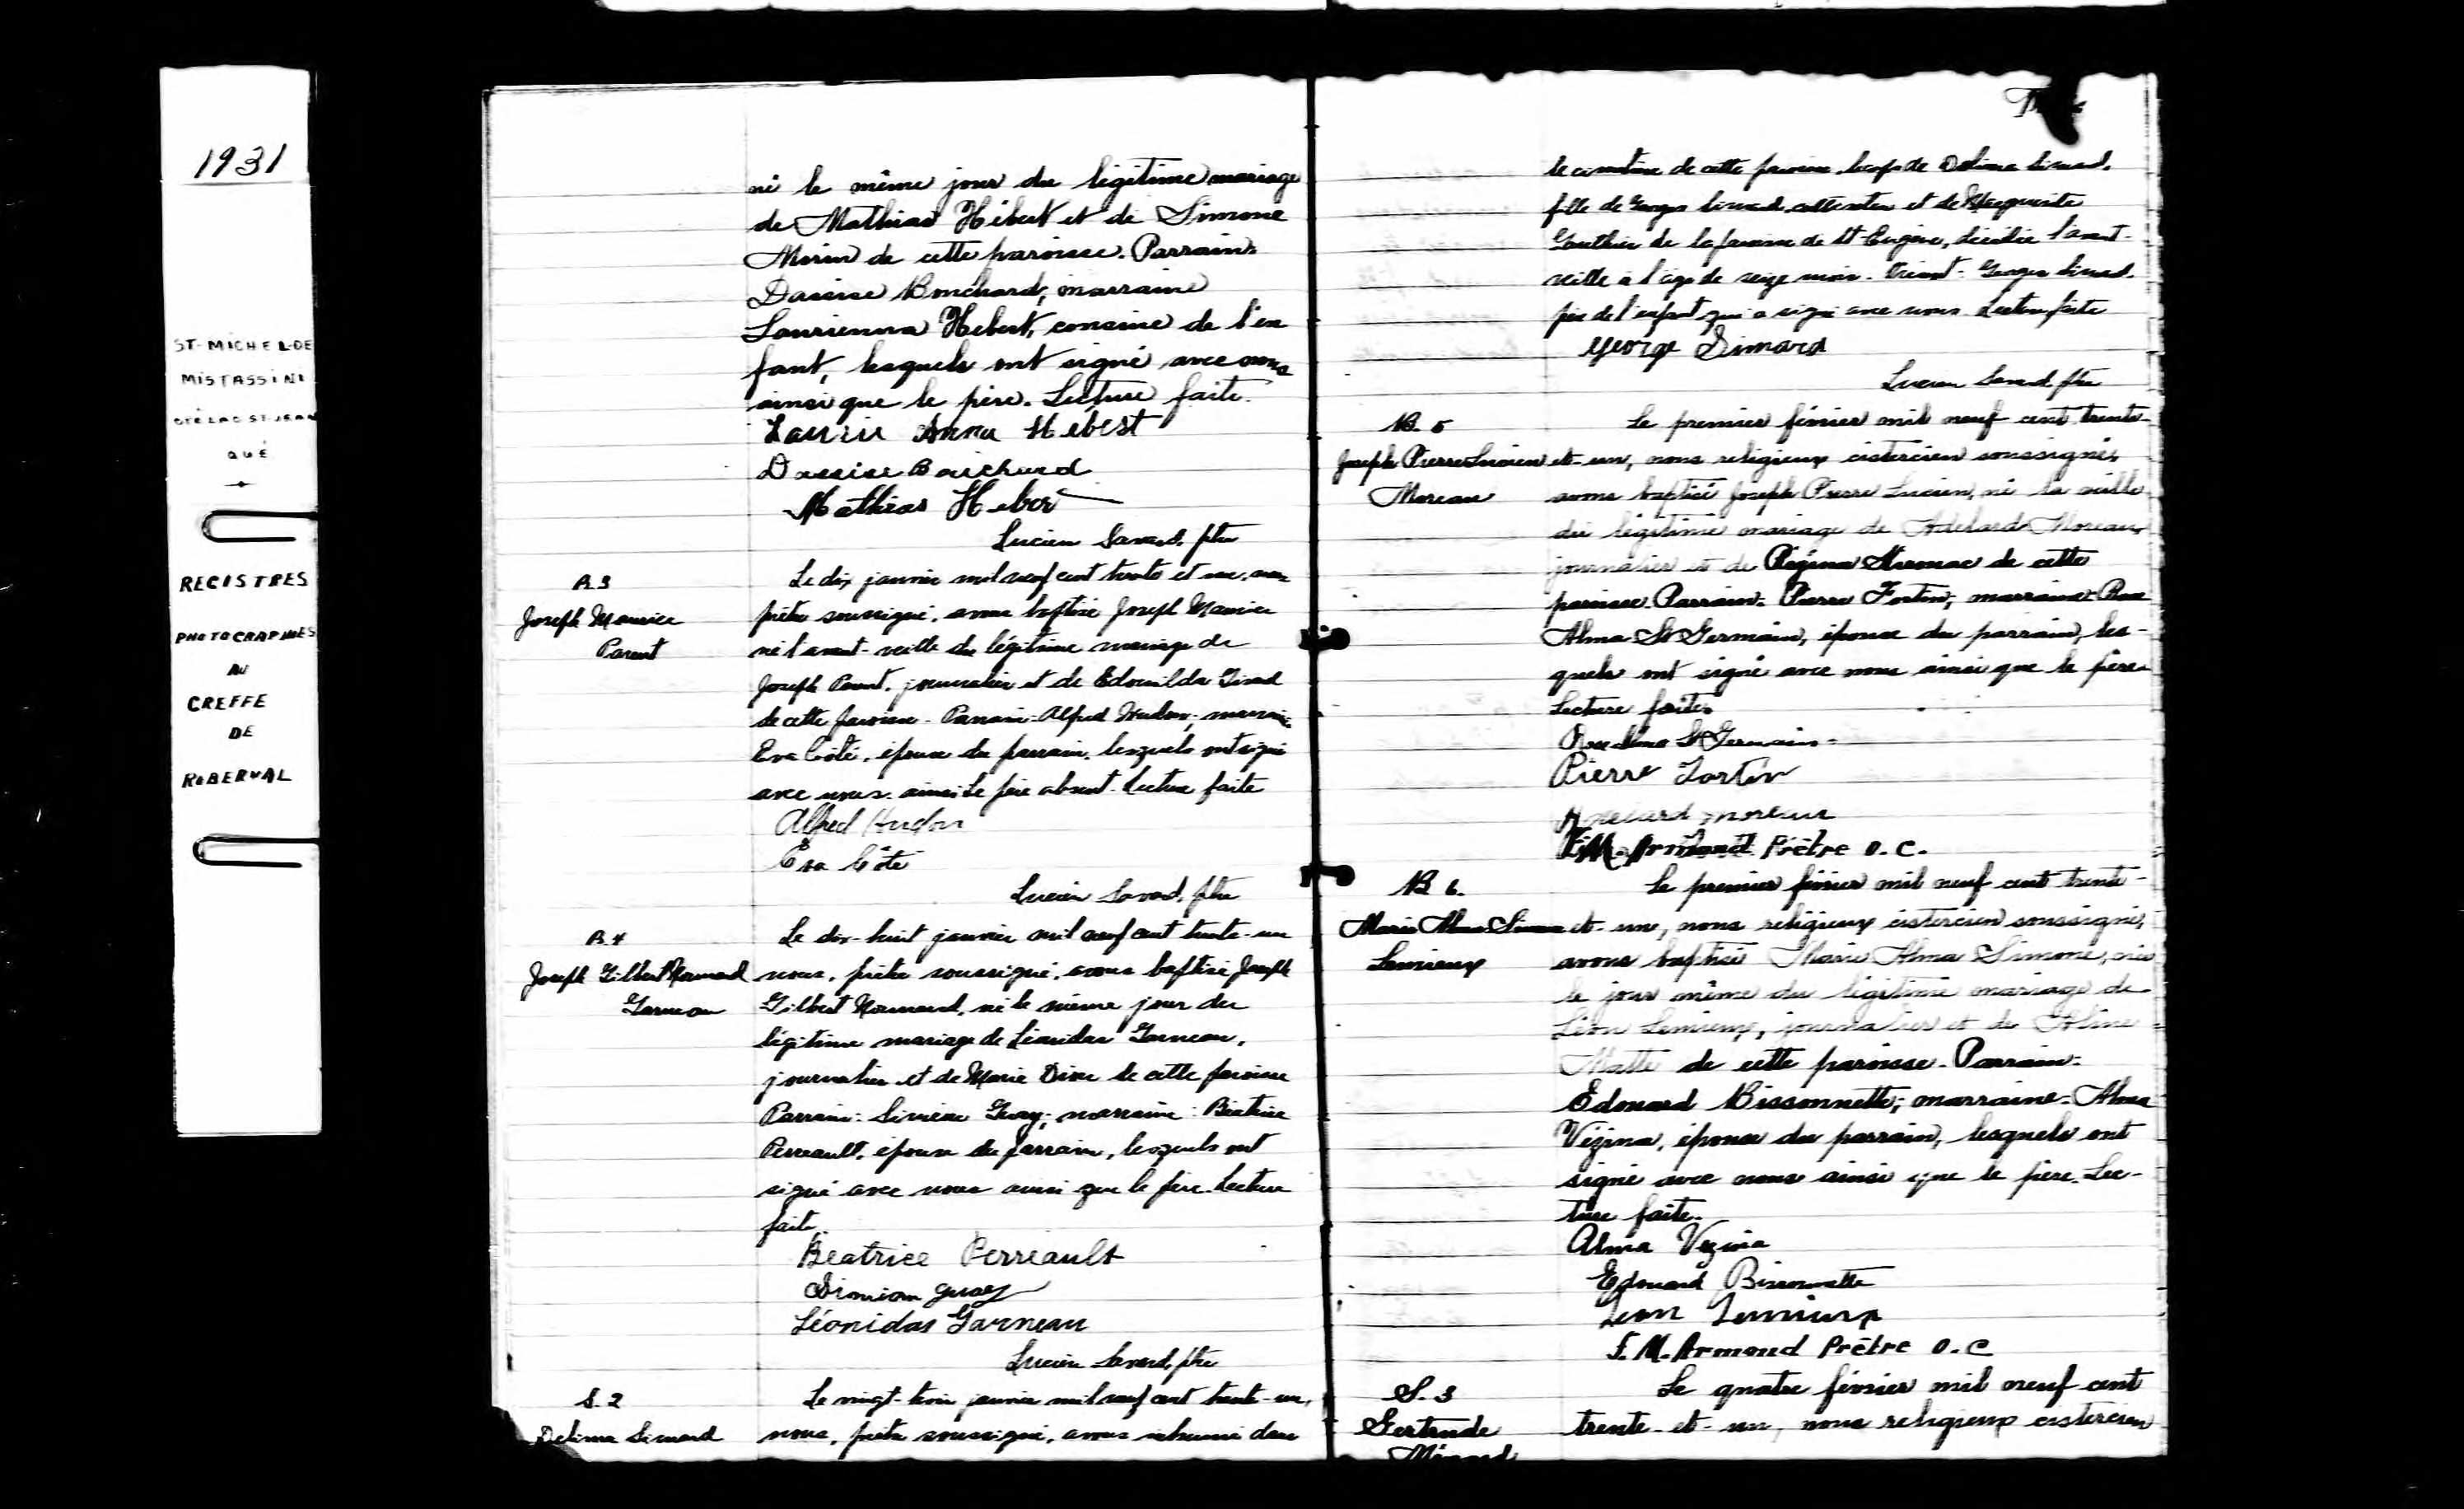 1931
ST-MICHEL-DE
MISTASSINI
CTÉ LAC ST-JEAN
QUÉ
REGISTRES
PHOTOGRAPHIÉS
AU
GREFFE
DE
ROBERVAL
né le même jour du légitime mariage
de Mathias Hébert et de Simone
Morin de cette paroisse. Parrain:
Bouchard, marraine
Hébert, cousine de l'en
fant, lesquels ont signé avec nous
ainsi que le père. Lecture faite.
Laurie Anna Hébert
Bouchard
Mathias Hébert
Lucien Savard, ptre
B.3
Joseph Maurice
Parent
Le dix janvier mil neuf cent trente et un, nous
prêtre soussigné, avons baptisé Joseph Maurice
né l'avant-veille du légitime mariage de
Joseph Parent, journalier et de Edouilda Girard
de cette paroisse. Parrain: Alfred Hudon, marraine
Eva Côté, épouse du parrain, lesquels ont signé
avec nous. Le père absent. Lecture faite
Alfred Hudon
Eva Côté
Lucien Savard, ptre
B.4
Joseph Gilbert Normand
Garneau
Le dix-huit janvier mil neuf cent trente-un
nous, prêtre soussigné, avons baptisé Joseph
Gilbert Normand, né le même jour du
légitime mariage de Léonidas Garneau,
journalier et de Marie Dion de cette paroisse
Parrain: Siméon Guay, marraine: Béatrice
Perreault, épouse du parrain, lesquels ont
signé avec nous ainsi que le père. Lecture
faite.
Béatrice Perreault
Guay
Léonidas Garneau
Lucien Savard, ptre
S.2
Délima Simard
Le vingt-trois janvier mil neuf cent trente-un,
nous, prêtre soussigné, avons inhumé dans
le cimetière de cette paroisse, le corps de Délima Simard,
fille de Georges Simard, cultivateur et de Marguerite
Gauthier de la paroisse de St-Eugène, décédée l'avant-
veille à l'âge de seize mois. Présent: Georges Simard,
père de l'enfant qui a signé avec nous. Lecture faite
George Simard
Lucien Savard, ptre
B. 5
Joseph Pierre Lucien
Moreau
Le premier février mil neuf cent trente-
et-un, nous religieux cistercien soussigné,
avons baptisé Joseph Pierre Lucien, né la veille
du légitime mariage de Adélard Moreau,
journalier et de Régina de cette
paroisse. Parrain: Pierre Fortin; marraine: Rose
Alma St Germain, épouse du parrain, les-
quels ont signé avec nous ainsi que le père.
Lecture faite.
Rose Alma St Germain
Pierre Fortin
Adelard Moreau
F. M. Armand Prêtre O. C.
B 6.
Marie Alma Simone
Lemieux
Le premier février mil neuf cent trente-
et-un, nous religieux cistercien soussigné,
avons baptisé Marie Alma Simone, née
le jour même du légitime mariage de
Léon Lemieux, journalier et de Aline
Matte de cette paroisse. Parrain:
Edouard Bissonnette; marraine: Alma
Vézina, épouse du parrain, lesquels ont
signé avec nous ainsi que le père. Lec-
ture faite.
Alma Vezina
Edouard Bissonnette
Leon Lemieux
F. M. Armand Prêtre O. C
S. 3
Gertrude
Le quatre février mil neuf cent
trente-et-un, nous religieux cistercien